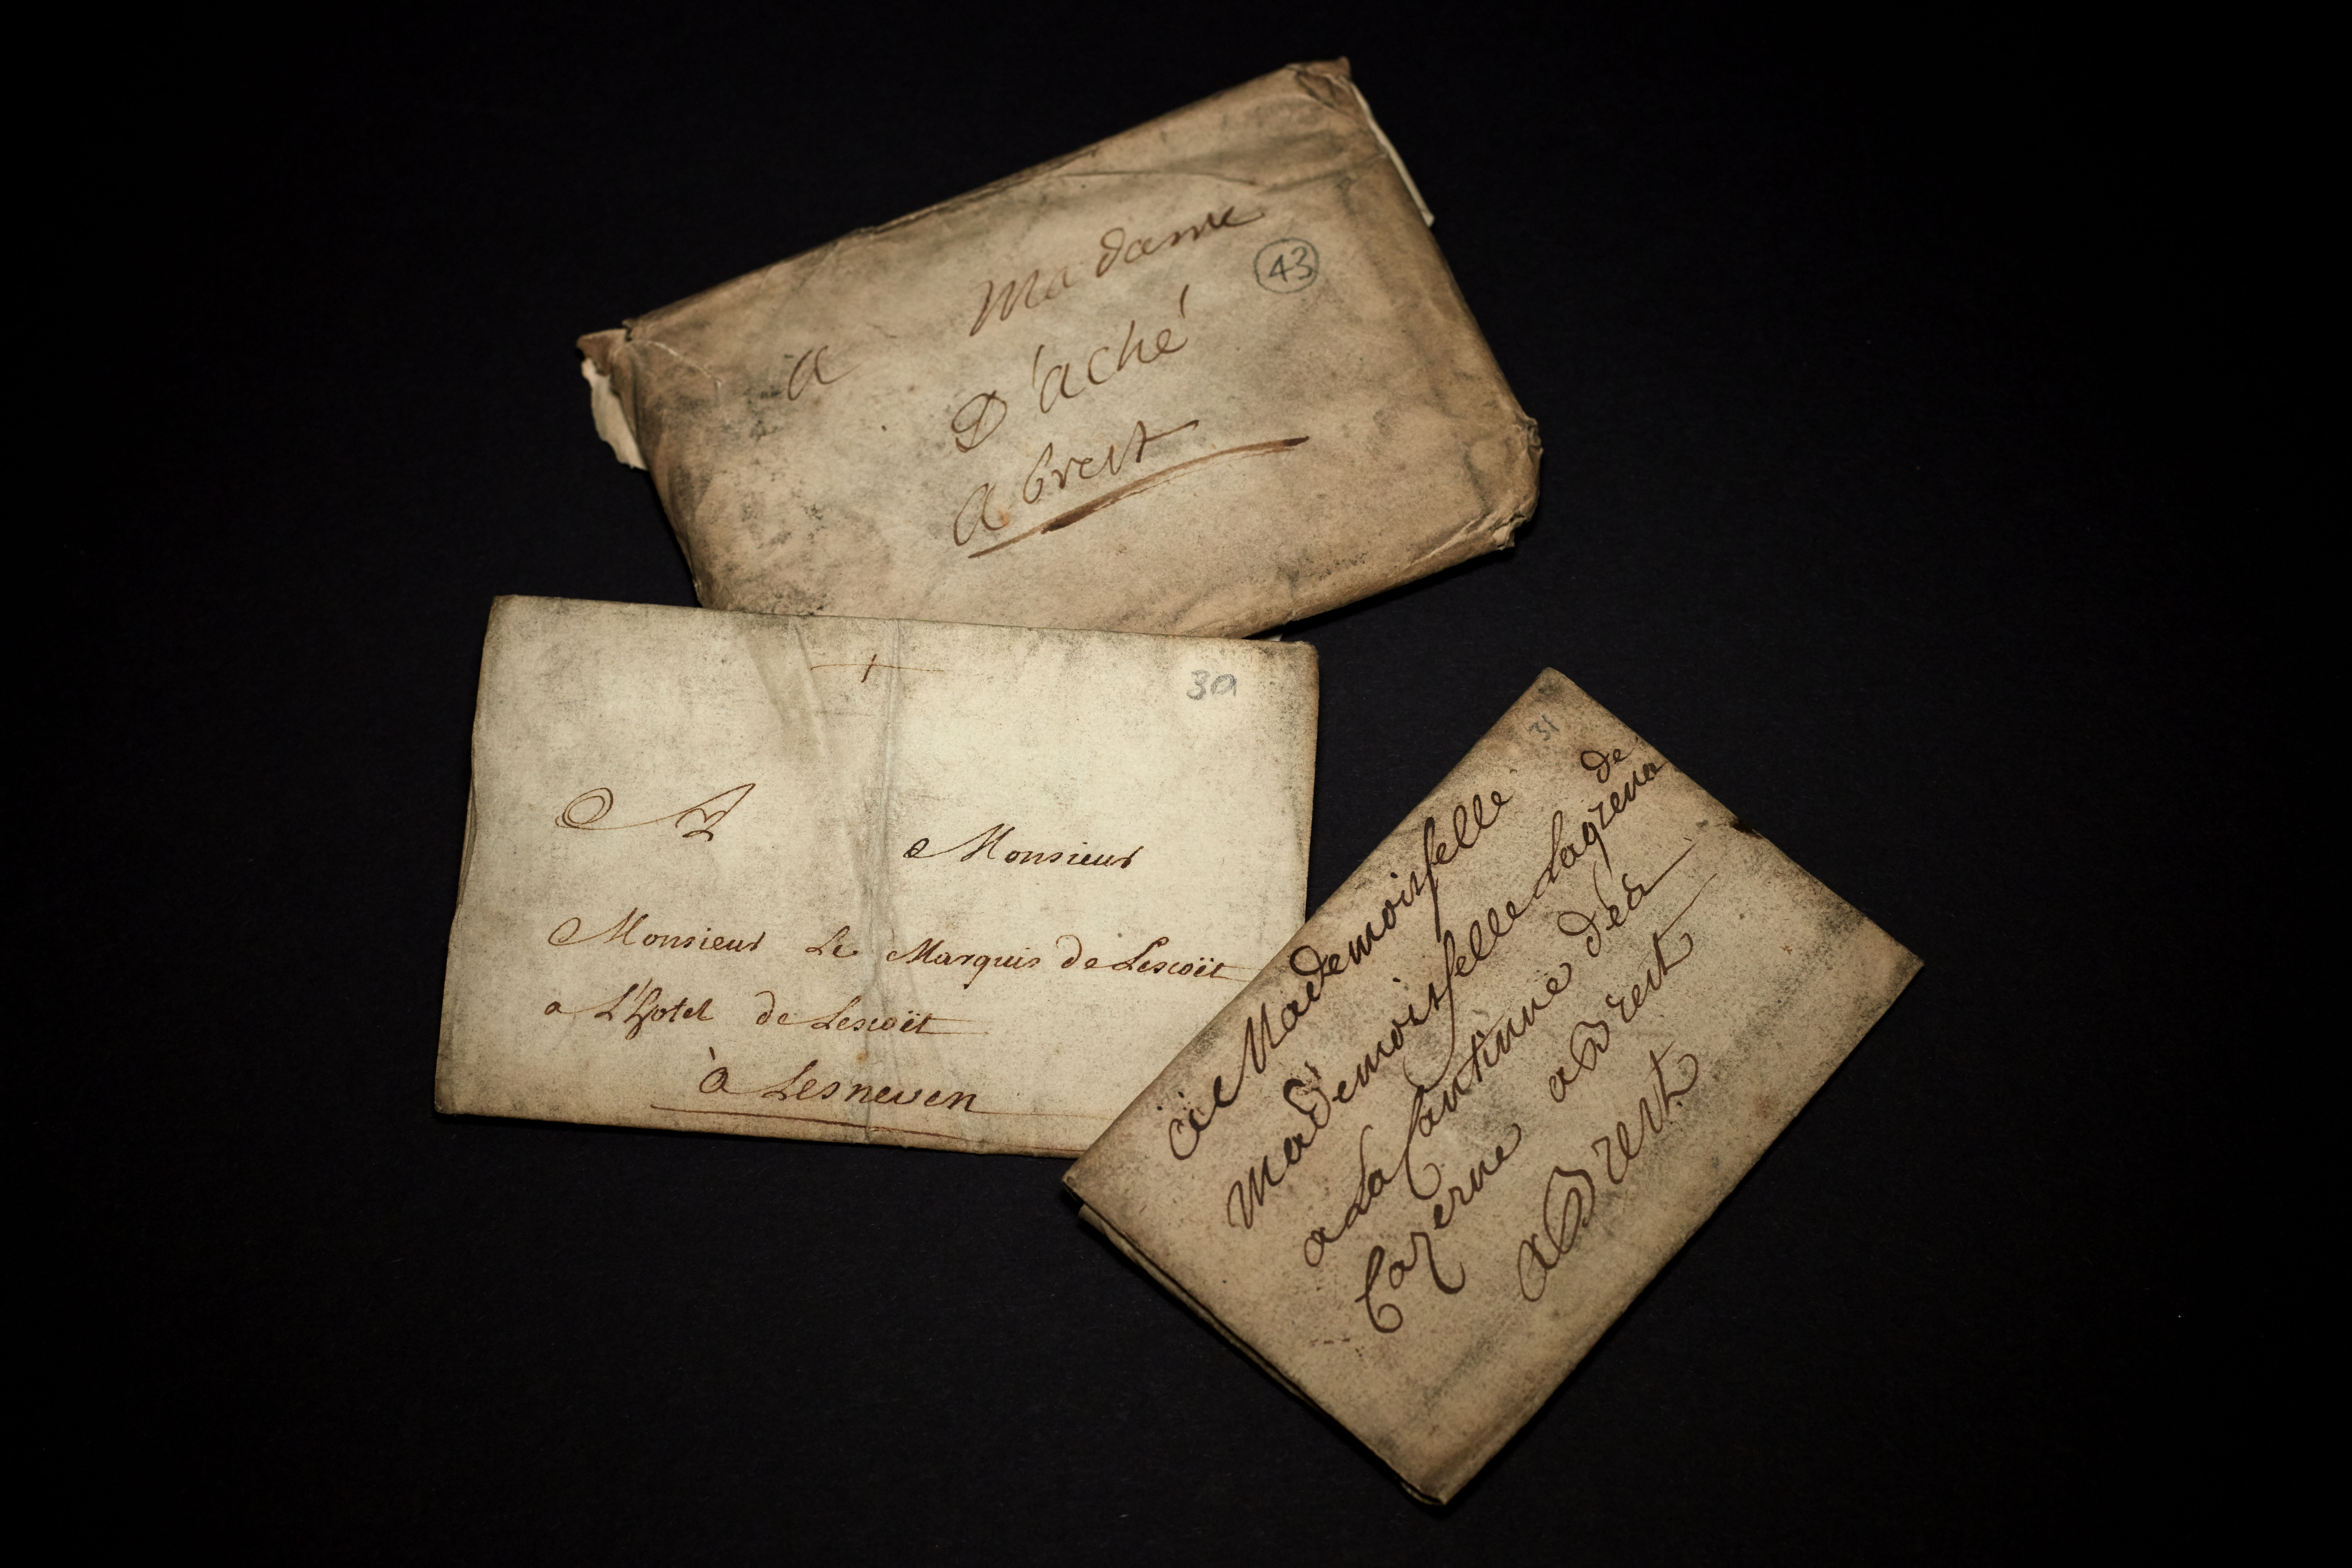 a Madame
43
D'aché
a brest
30
A Monsieur
Monsieur Le Marquis de Lescoët
a L'hotel de Lescoët
à Lesneven
31
Mademoiselle
de
Mademoiselle Lagrena
a La Cantinne des
Cazerne a Brest
a Brest